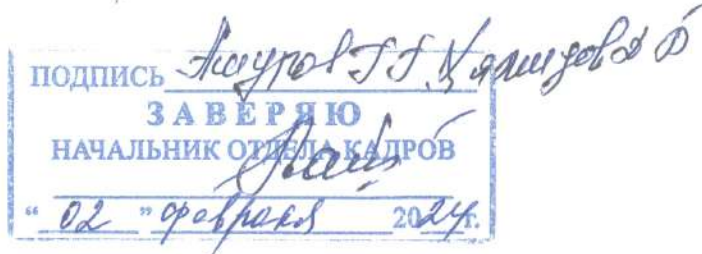 ПОДПИСЬ Ашуров Г Г
ЗАВЕРЯЮ
НАЧАЛЬНИК ОТДЕЛА КАДРОВ
“ 02 ” февраля 2024г.